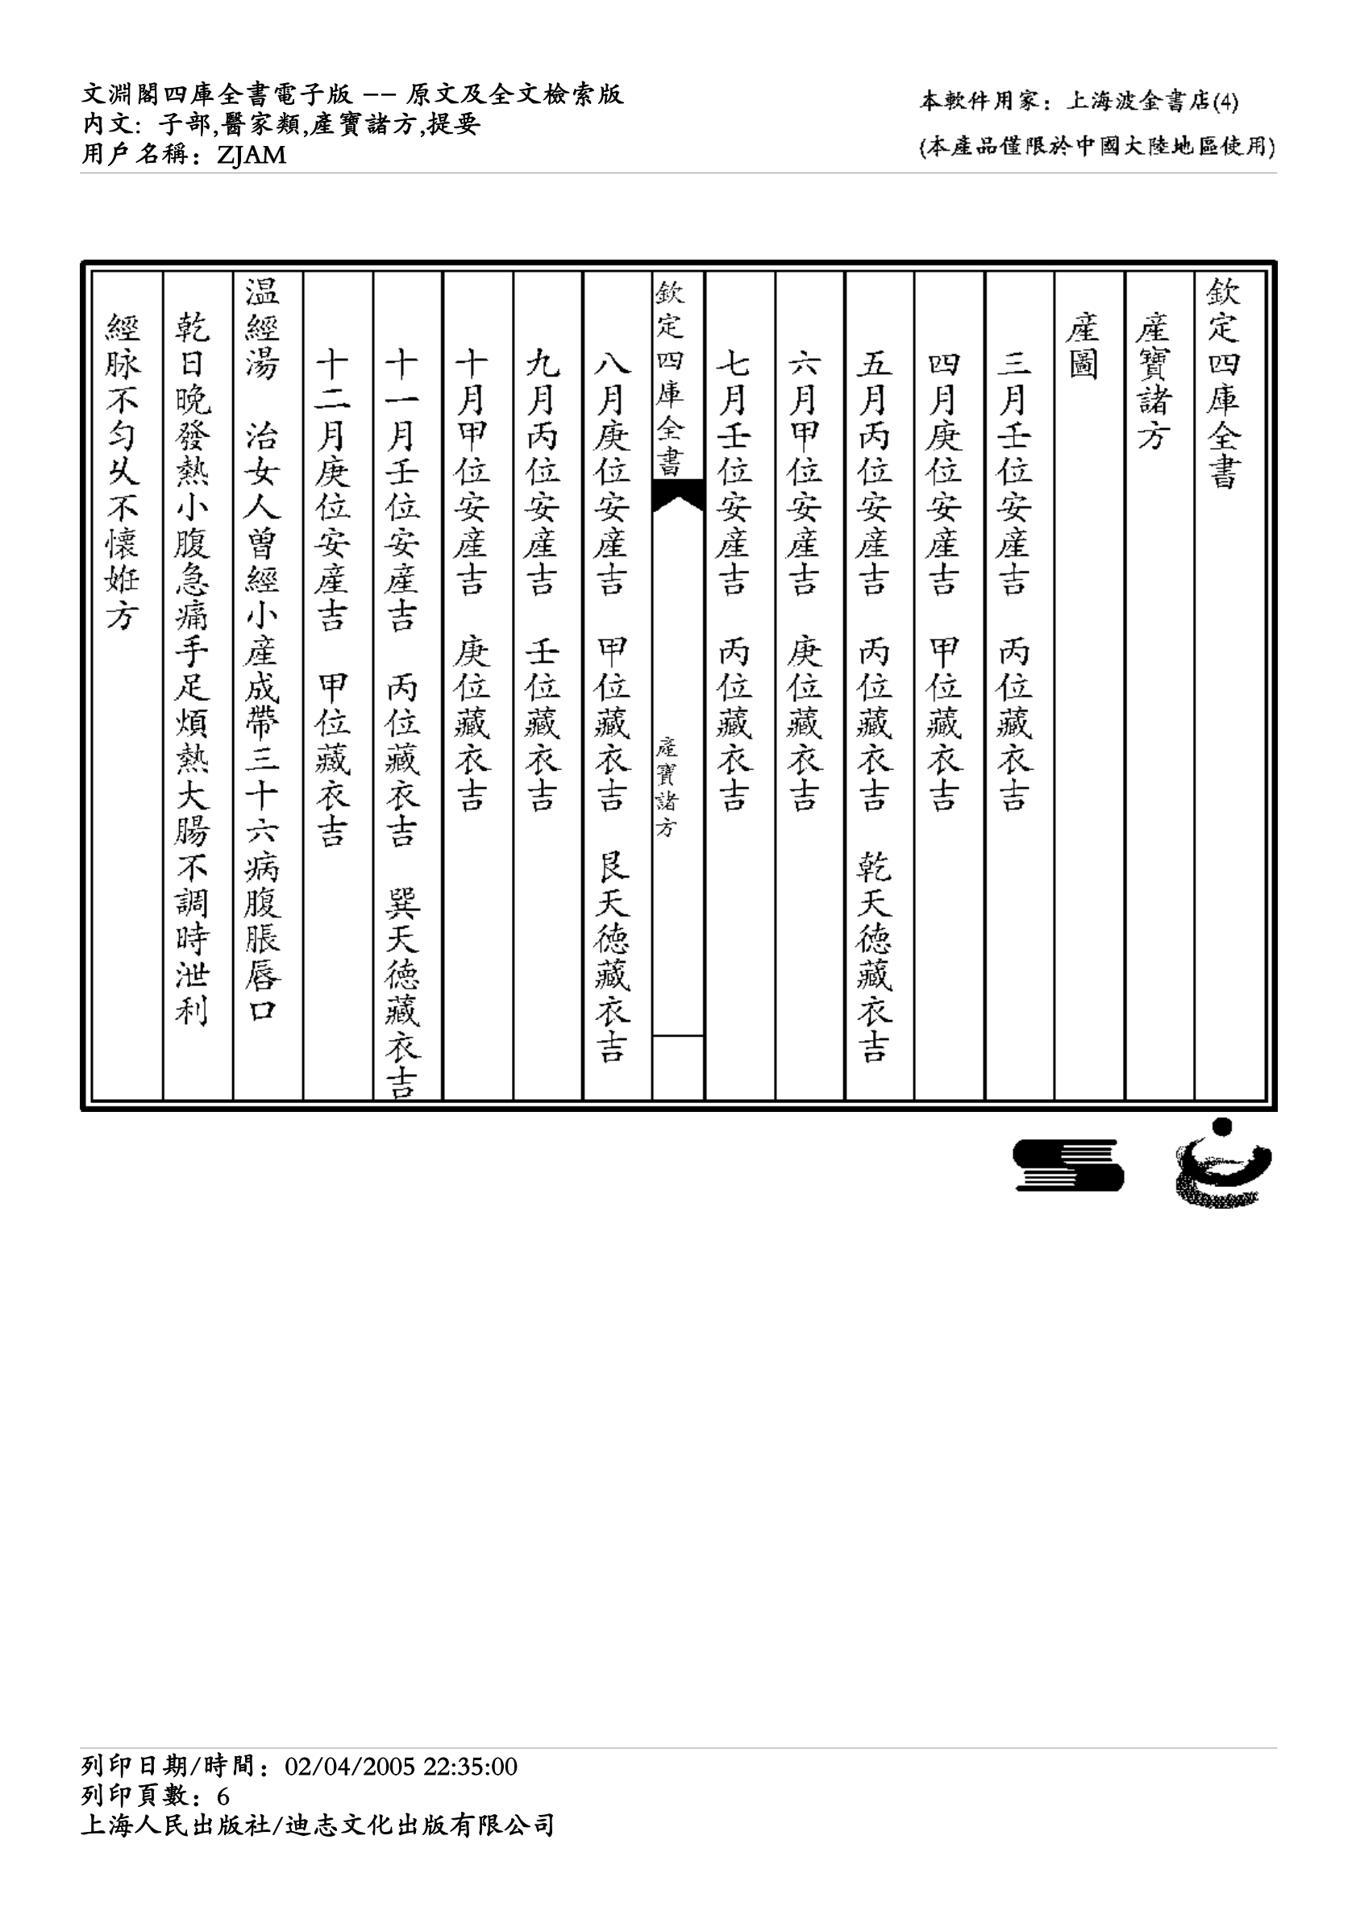 文淵閣四庫全書電子版 -- 原文及全文檢索版
內文: 子部,醫家類,產寶諸方,提要
用戶名稱: ZJAM
本軟件用家: 上海波金書店(4)
(本產品僅限於中國大陸地區使用)
欽定四庫全書
產寶諸方
產圖
三月壬位安產吉 丙位藏衣吉
四月庚位安產吉 甲位藏衣吉
五月丙位安產吉 丙位藏衣吉 乾天德藏衣吉
六月甲位安產吉 庚位藏衣吉
七月壬位安產吉 丙位藏衣吉
欽定四庫全書 產寶諸方
八月庚位安產吉 甲位藏衣吉 艮天德藏衣吉
九月丙位安產吉 壬位藏衣吉
十月甲位安產吉 庚位藏衣吉
十一月壬位安產吉 丙位藏衣吉 巽天德藏衣吉
十二月庚位安產吉 甲位藏衣吉
温經湯 治女人曾經小產成帶三十六病腹脹唇口
乾日晚發熱小腹急痛手足煩熱大腸不調時泄利
經脉不匀乆不懷姙方
列印日期/時間: 02/04/2005 22:35:00
列印頁數: 6
上海人民出版社/迪志文化出版有限公司